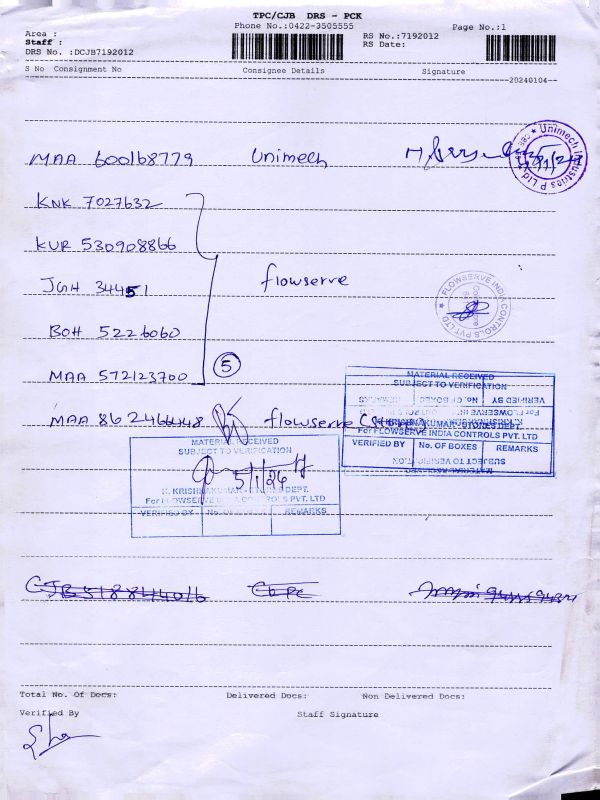 TPC/CJB DRS - PCK
Phone No.:0422-3505555
Page No.:1
Area :
Staff :
DRS No. :DCJB7192012
RS No.:7192012
RS Date:
S No Consignment No Consignee Details Signature
20240104
MAA 600168779 Unimech
Unimech Industries P Ltd
KNK 7027632
KUR 530908866
JGH 34451 flowserve
FLOWSERVE INDIA CONTROLS PVT LTD
BOH 5226060
MAA 572123700
5
MAA 862466448 flowserve
MATERIAL RECEIVED
SUBJECT TO VERIFICATION
VERIFIED BY No. OF BOXES REMARKS
KRISHNAKUMAR - STORES DEPT.
For FLOWSERVE INDIA CONTROLS PVT. LTD
VERIFIED BY No. OF BOXES REMARKS
SUBJECT TO VERIFICATION
MATERIAL RECEIVED
MATERIAL RECEIVED
SUBJECT TO VERIFICATION
K. KRISHNAKUMAR - STORES DEPT.
For FLOWSERVE INDIA CONTROLS PVT. LTD
VERIFIED BY No. OF BOXES REMARKS
Total No. Of Docs: Delivered Docs: Non Delivered Docs:
Verified By Staff Signature